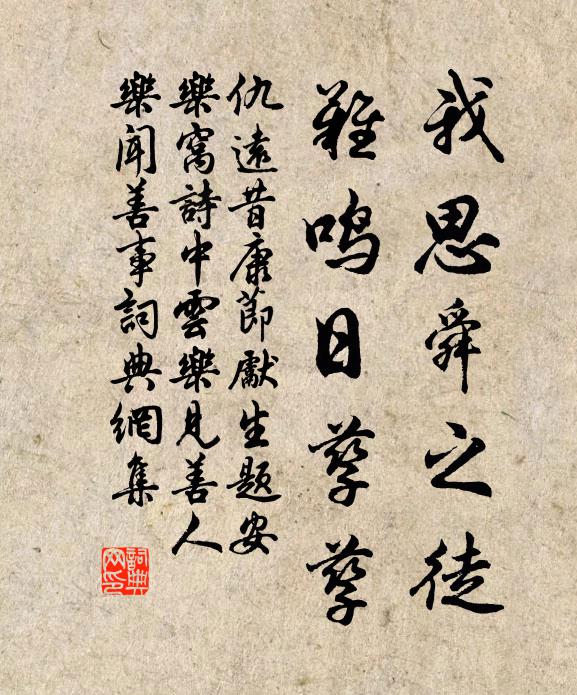 我思舜之徒
雞鳴日孳孳
仇遠昔康節獻生題安
樂窩詩中雲樂見善人
樂聞善事詞典網集
詞典
网印